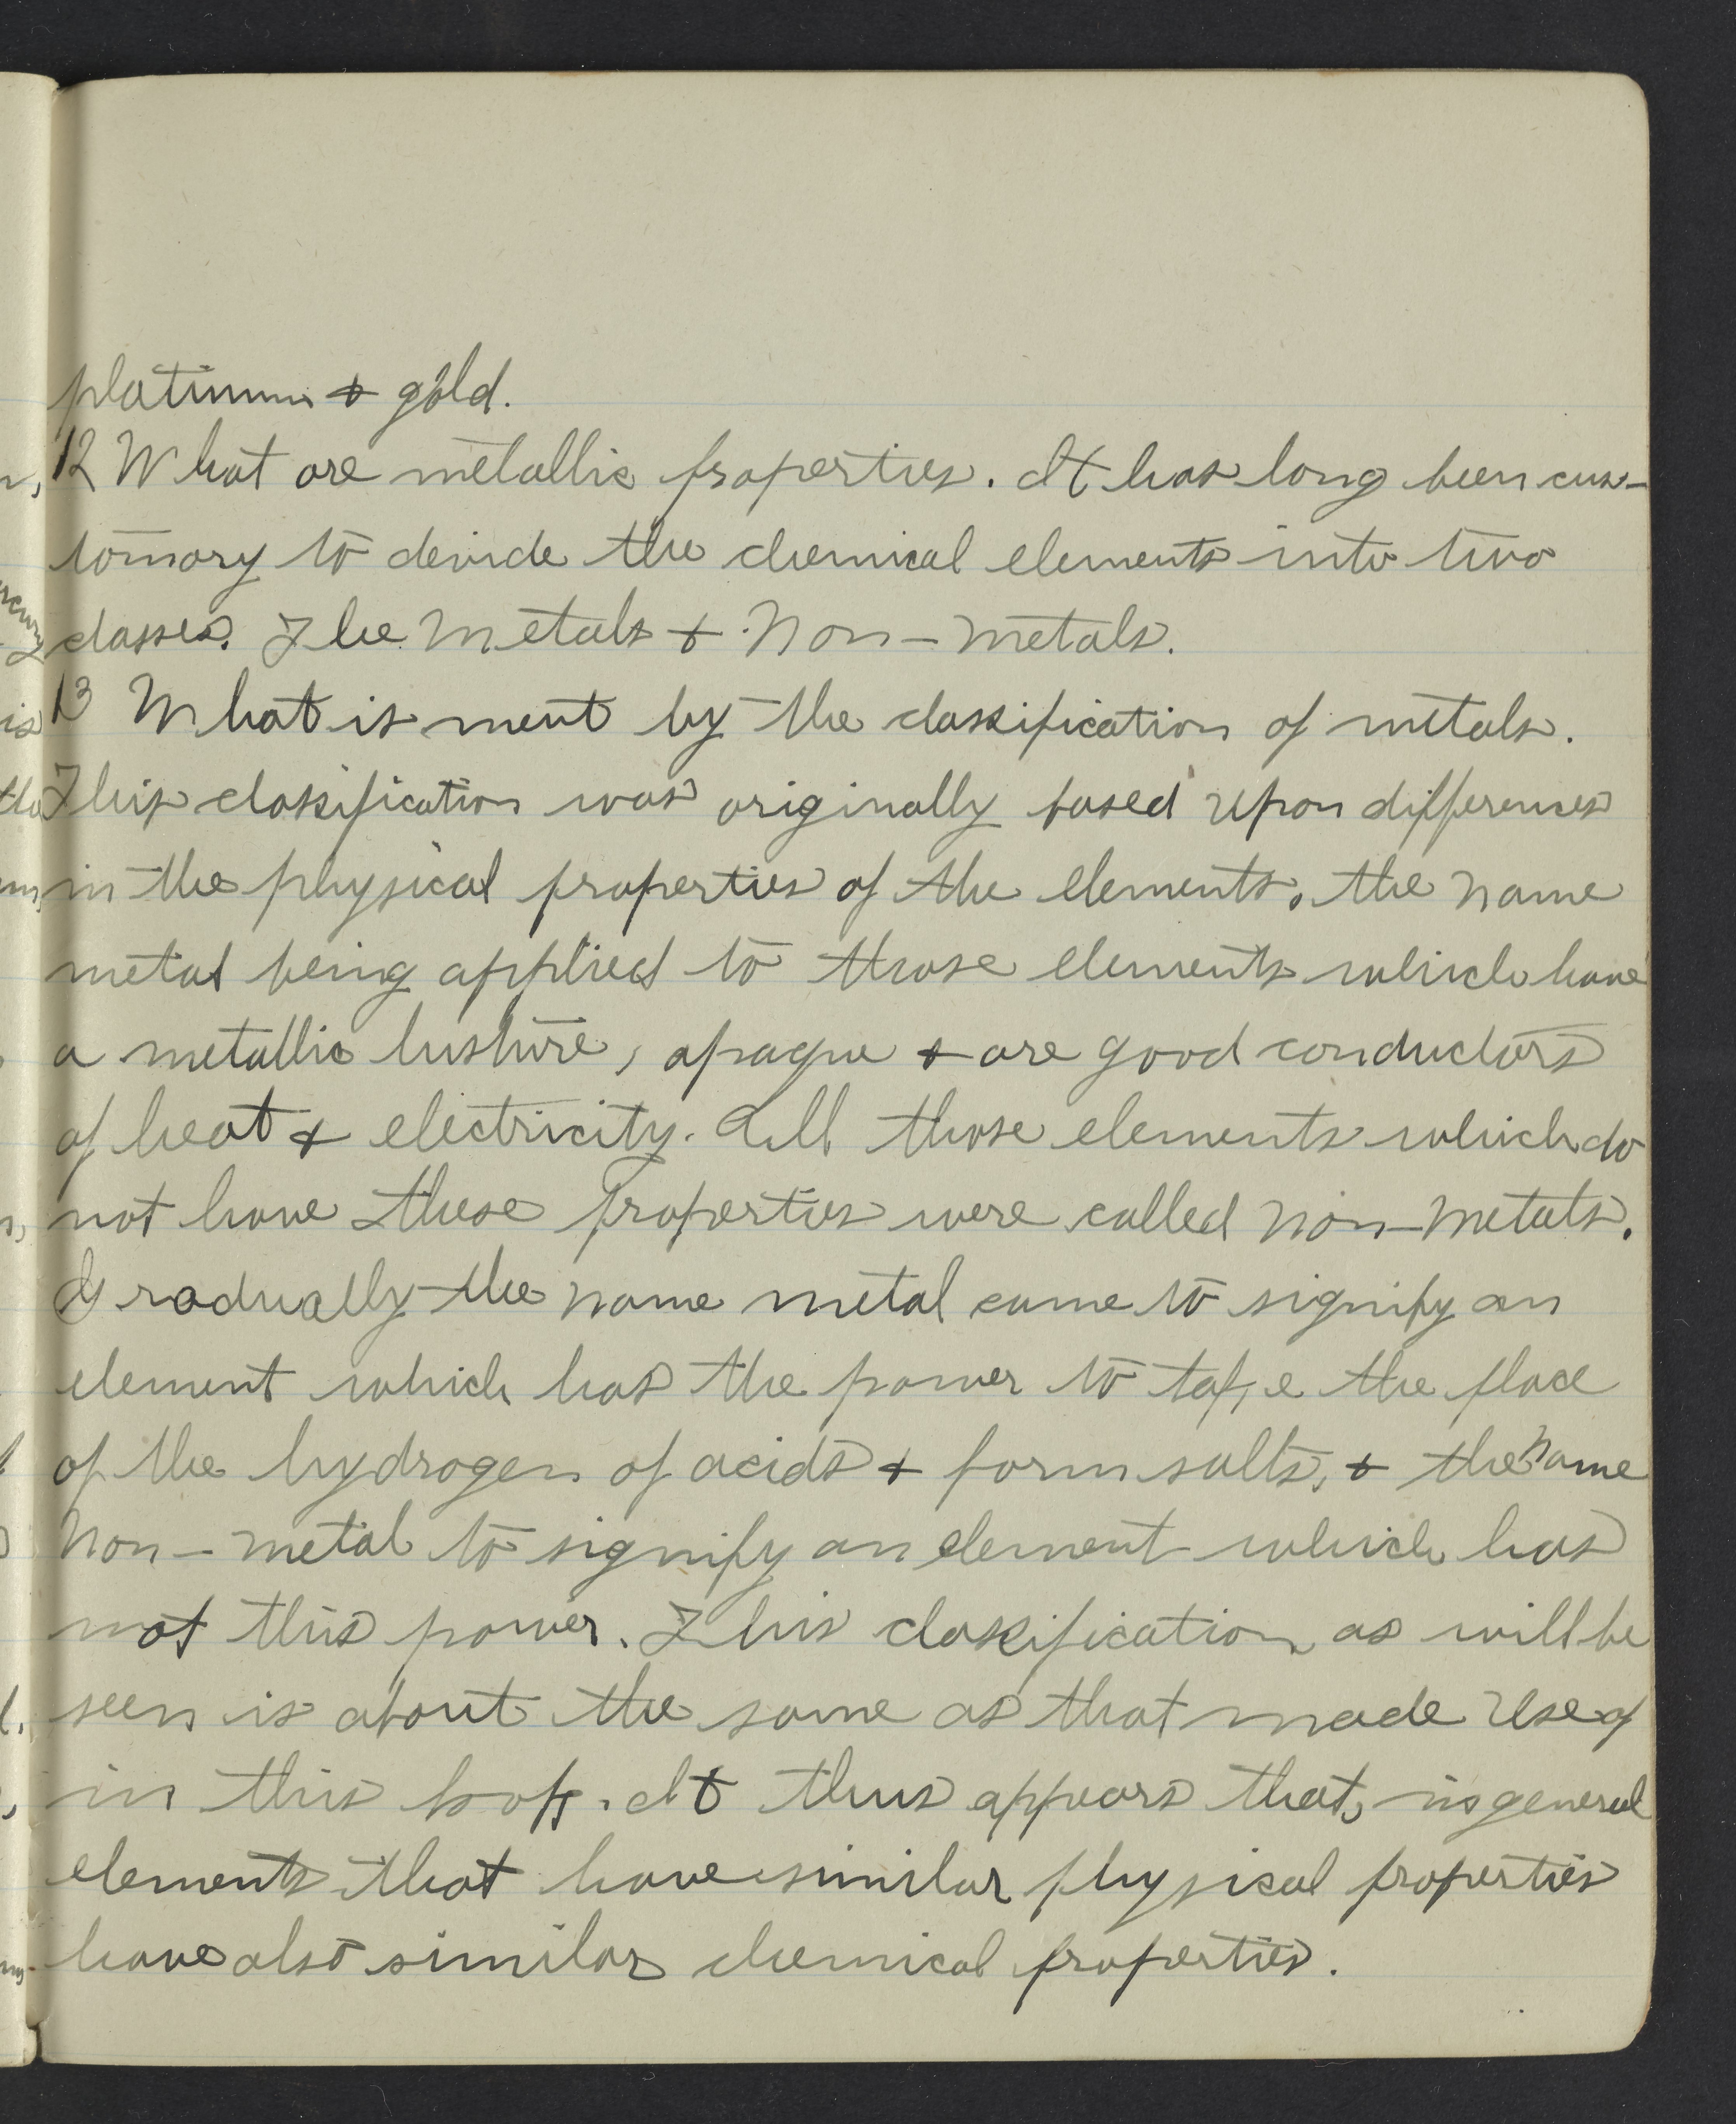 platinum & gold.
12 What are metallic properties. It has long been cus-
tomary to devide the chemical elements into two
classes. The Metals & Non-metals.
13 What is ment by the classification of metals.
This classification was originally based upon differences
in the physical properties of the elements, the name
metal being applied to those elements which have
a metallic lusture, opaque & are good conductors
of heat & electricity. All those elements which do
not have these Properties were called Non-Metals.
Gradually the name metal came to signify an
element which has the power to take the place
of the hydrogen of acids & form salts, & the name
Non-metal to signify an element which has
not this power. This classification as will be
seen is about the same as that made use of
in this book. It thus appears that, in general
elements that have similar physical properties
have also similar chemical properties.